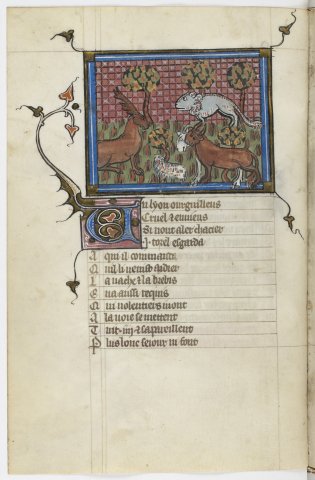 Un lyon orguilleus
Cruel & envieus
Si vout aler chacier
I. torel esgarda
A qui il commanda
Q'il li venist aidier
La vache & la brebis
En a aussi requis
Qui volentiers vont
A la voie se mettent
Tuit et
Plus lonc seiour ni font